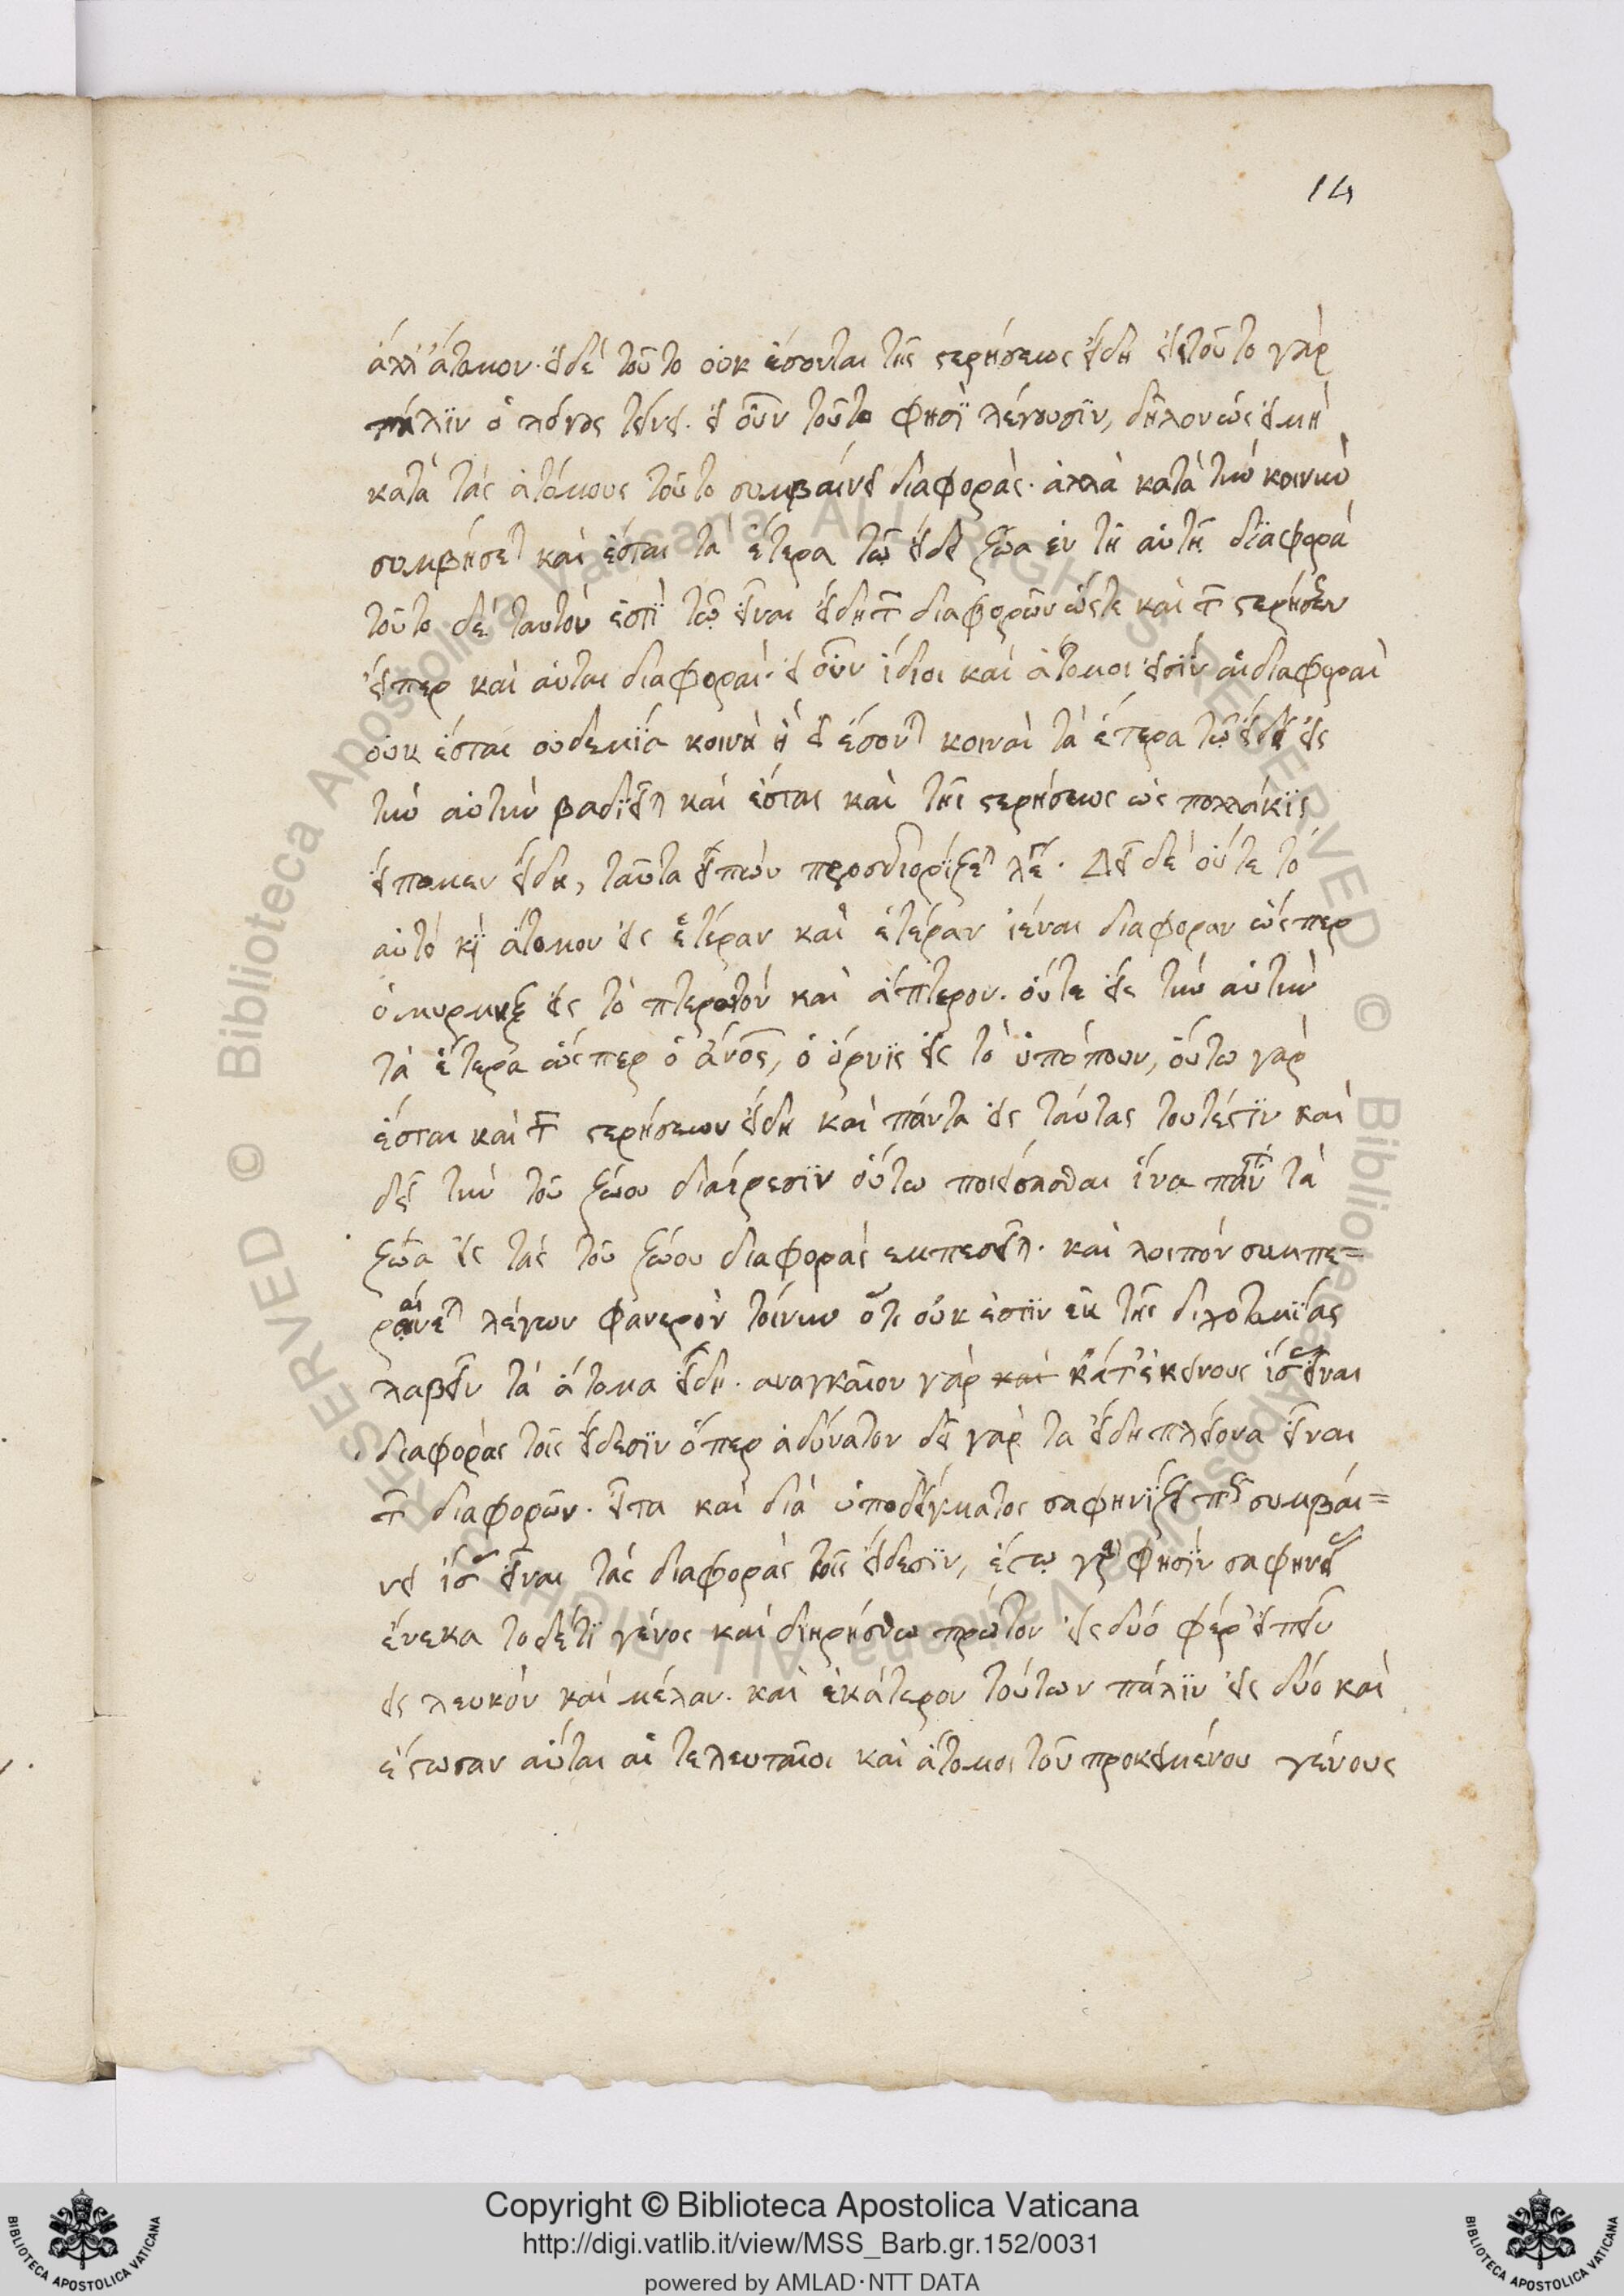 14
ἀλλ' ἄτομον. εἰ δὲ τοῦτο οὐκ ἔσονται τῆς στερήσεως εἴδη εἰς τοῦτο γὰρ
πάλϊν ὁ λόγος τείνει. εἰ οὖν τοῦτο φησὶ λέγουσϊν, δῆλον ὡς εἰ μὴ
κατὰ τὰς ἀτόμους τοῦτο συμβαίνει διαφοράς. ἀλλὰ κατὰ τὴν κοινὴν
συμβήσεται καὶ ἔσται τὰ ἕτερα τῷ εἴδει ζῷα ἐν τῇ αὐτῇ διαφορᾷ
τοῦτο δὲ ταυτόν ἐστὶ τῷ εἶναι εἴδη τῶν διαφορῶν ὥστε καὶ τῶν στερήσεων
εἴπερ καὶ αὗται διαφοραί. εἰ οὖν ἴδιοι καὶ ἄτομοι εἰσὶν αἱ διαφοραὶ
οὐκ ἔσται οὐδεμϊα κοινὴ ἢ εἰ ἔσονται κοιναὶ τὰ ἕτερα τῷ εἴδει εἰς
τὴν αὐτὴν βαδϊεῖται καὶ ἔσται καὶ τῆς στερήσεως ὡς πολλάκϊς
εἴπομεν εἴδη, ταῦτα εἰπὼν προσδιορίζεται λέγων. Δεῖ δὲ οὔτε τὸ
αὐτὸ καὶ ἄτομον εἰς ἑτέραν καὶ ἑτέραν ἰέναι διαφοραν ὥσπερ
ὁ μύρμηξ εἰς τὸ πτερωτὸν καὶ ἄπτερον. οὔτε εἰς τὴν αὐτὴν
τὰ ἕτερα ὥσπερ ὁ ἄνος, ὁ ὄρνις εἰς τὸ ὑπόπουν, οὕτω γὰρ
ἔσται καὶ τῶν στερήσεων εἴδη καὶ πάντα εἰς ταύτας τουτέστϊν καὶ
δεῖ τὴν τοῦ ζώου διαίρεσϊν οὕτω ποιεῖσασθαι ἵνα πάντα τὰ
ζῷα εἰς τὰς τοῦ ζώου διαφορὰς εμπεσεῖται. καὶ λοιπὸν συμπε=
ραίνεται λέγων φανερὸν τοίνυν ὅτι οὐκ ἔστϊν ἐκ τῆς διχοτομϊας
λαβεῖν τὰ ἄτομα εἴδη. αναγκαῖον γὰρ κατ' ἐκείνους ἴσας εἶναι
διαφορὰς τοῖς εἴδεσϊν ὅπερ ἀδύνατον δεῖ γὰρ τα εἴδη πλείονα εἶναι
τῶν διαφορῶν. εἶτα καὶ διὰ ὑποδείγματος σαφηνίζει πῶς συμβαί=
νει ἴσας εἶναι τὰς διαφορὰς τοῖς εἴδεσϊν, ἔστω γὰρ φησὶν σαφηνείας
ἕνεκα τοδέ τϊ γένος καὶ διῃρήσθω πρῶτον εἰς δύο φέρ' εἰπεῖν
εἰς λευκὸν καὶ μέλαν. καὶ ἑκάτερον τούτων πάλϊν εἰς δύο καὶ
ἔστωσαν αὗται αἱ τελευταῖοι καὶ ἄτομοι τοῦ προκειμένου γένους
Copyright © Biblioteca Apostolica Vaticana
http://digi.vatlib.it/view/MSS_Barb.gr.152/0031
powered by AMLAD·NTT DATA